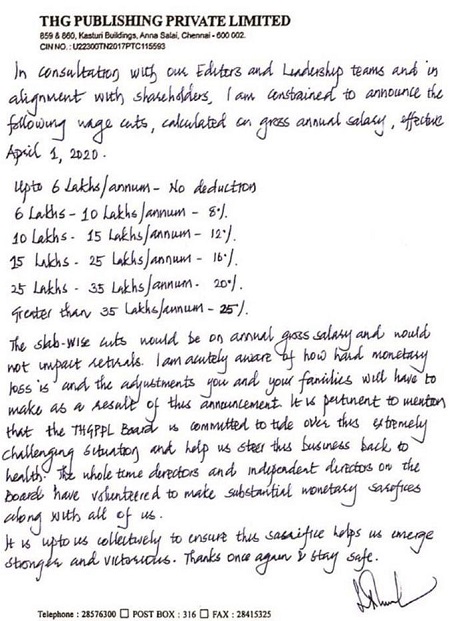 THG PUBLISHING PRIVATE LIMITED
859 & 860, Kasturi Buildings, Anna Salai, Chennai - 600 002.
CIN NO. : U22300TN2017PTC115593
In consultation with our Editors and Leadership teams and in
alignment with shareholders, I am constrained to announce the
following wage cuts, calculated on gross annual salary, effective
April 1, 2020.
Upto 6 Lakhs/annum - No deduction
6 Lakhs - 10 Lakhs/annum - 8%.
10 Lakhs - 15 Lakhs/annum - 12%.
15 Lakhs - 25 Lakhs/annum - 16%.
25 Lakhs - 35 Lakhs/annum - 20%.
Greater than 35 Lakhs/annum - 25%.
The slab-wise cuts would be on annual gross salary and would
not impact retirals. I am acutely aware of how hard monetary
loss is and the adjustments you and your families will have to
make as a result of this announcement. It is pertinent to mention
that the THGPPL Board is committed to tide over this extremely
challenging situation and help us steer this business back to
health. The whole time directors and independent directors on the
Board have volunteered to make substantial monetary
along with all of us.
It is upto us collectively to ensure this sacrifice helps us emerge
stronger and victorious. Thanks once again & stay safe.
Telephone : 28576300 □ POST BOX : 316 □ FAX : 28415325